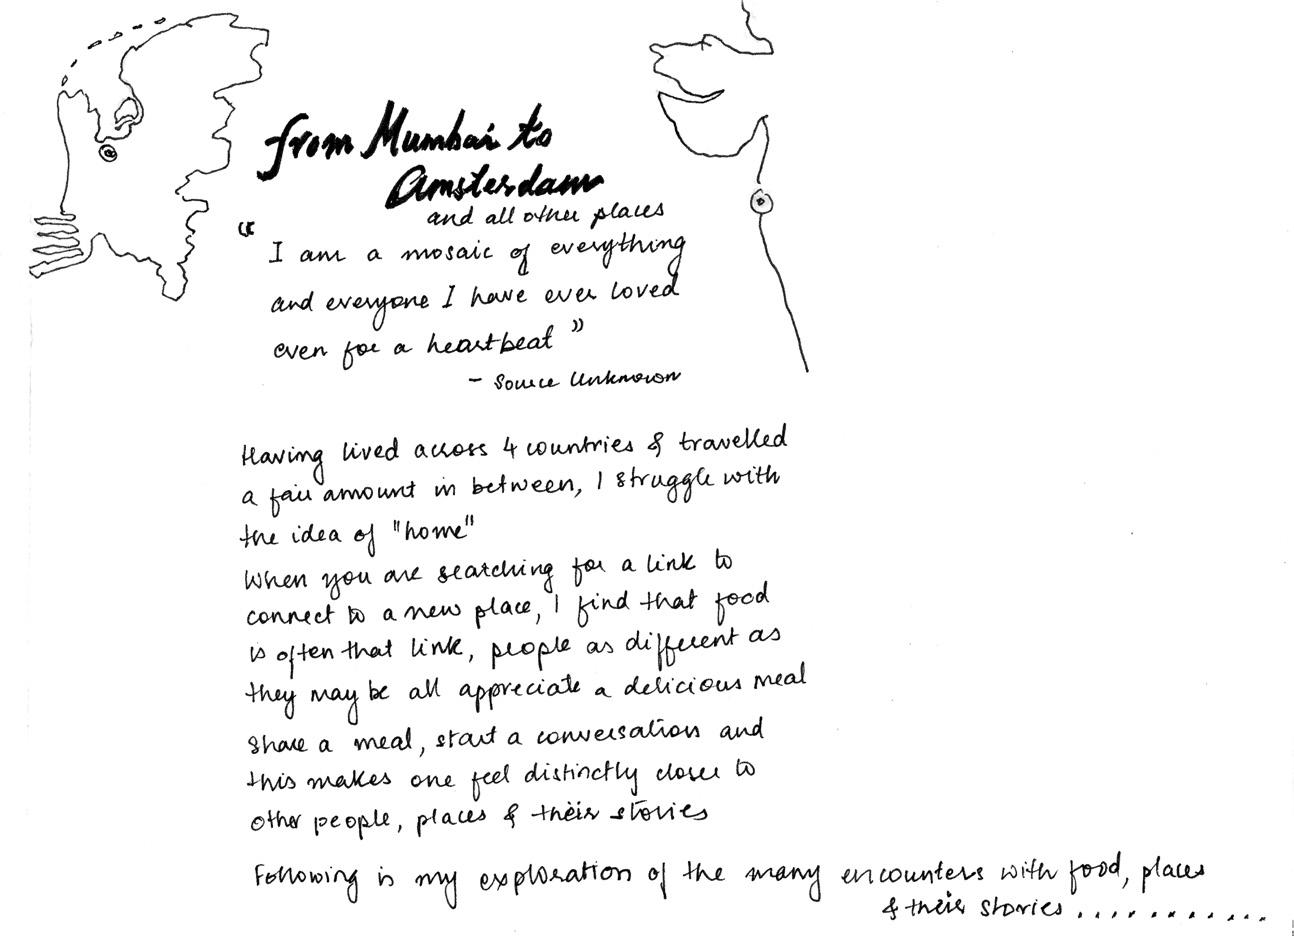 from Mumbai to
Amsterdam
and all other places
"I am a mosaic of everything
and everyone I have ever loved
even for a heartbeat"
- Source Unknown
Having lived across 4 countries & travelled
a fair amount in between, I struggle with
the idea of "home"
When you are searching for a link to
connect to a new place, I find that food
is often that link, people as different as
they may be all appreciate a delicious meal
share a meal, start a conversation and
this makes one feel distinctly closer to
other people, places & their stories
Following is my exploration of the many encounters with food, places
& their stories . . . . . . . . . . .